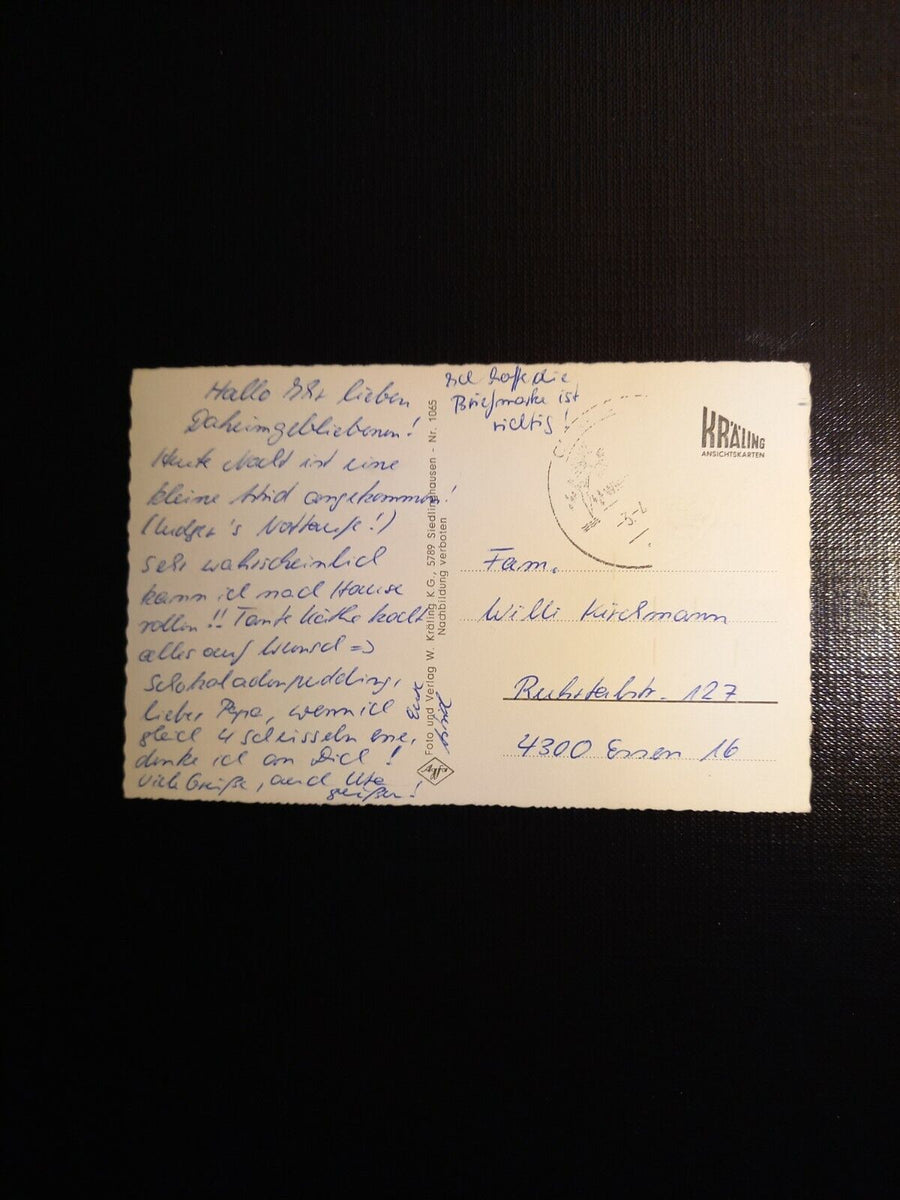 Hallo Ihr lieben
Daheimgebliebenen!
Heute Nacht ist eine
kleine Astrid angekommen!
(Ludger's Nottaufe!)
Sehr wahrscheinlich
kann ich nach Hause
rollen!! Tante Käthe kocht
alles auf Wunsch =>
Schokoladenpudding,
lieber Papa, wenn ich
gleich 4 Schüsseln esse,
denke ich an Dich!
Viele Grüße, auch Ute
grüßen!
Eure
Astrid
Foto und Verlag W. Kräling K.G., 5789 Siedlinghausen - Nr. 1065
Nachbildung verboten
Agfa
Ich hoffe die
Briefmarke ist
richtig!
KRÄLING
ANSICHTSKARTEN
Fam.
Willi Kirchmann
Ruhrtalstr. 127
4300 Essen 16